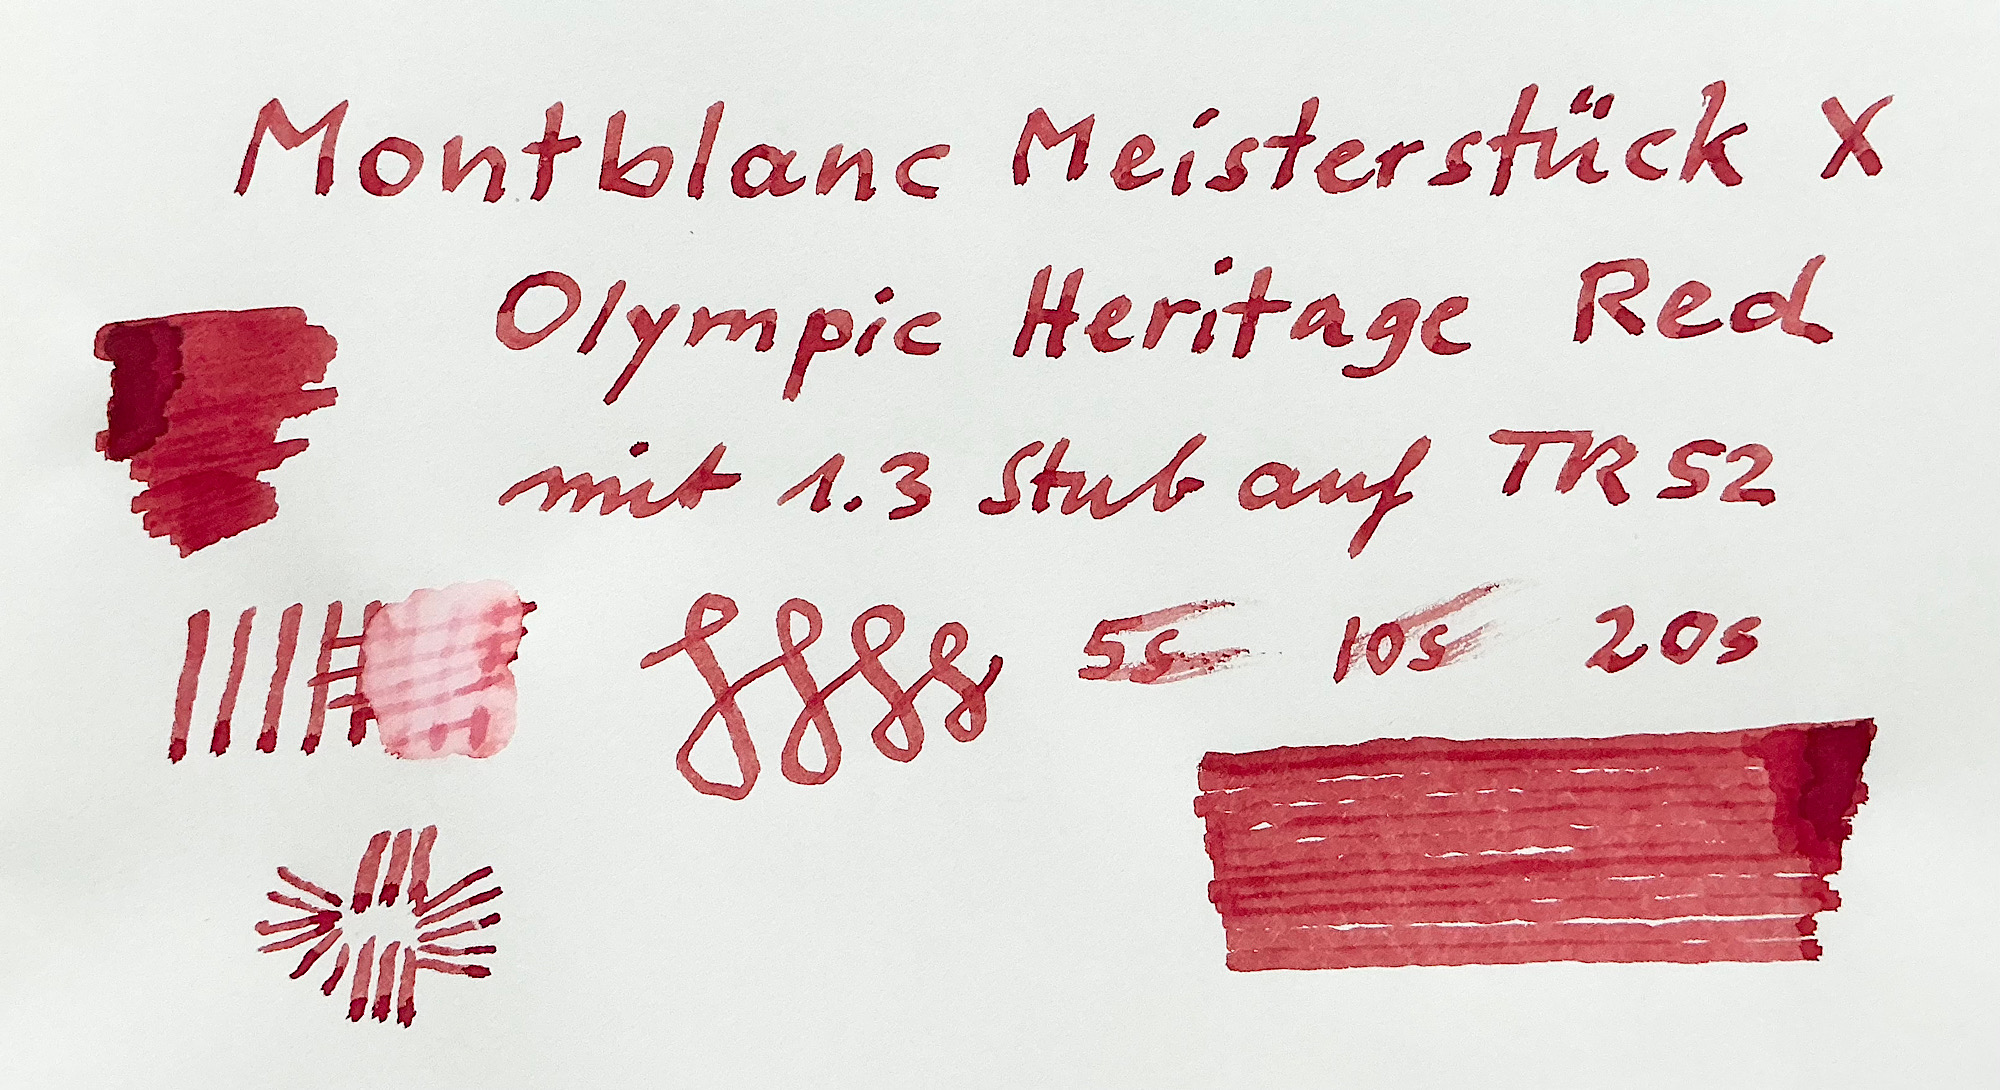 Montblanc Meisterstück X
Olympic Heritage Red
mit 1.3 Stub auf TR 52
5s 10s 20s